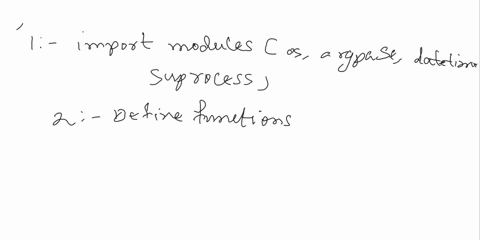 1:- import modules ( os, argpase, datetime
Suprocess,
2:- Define functions